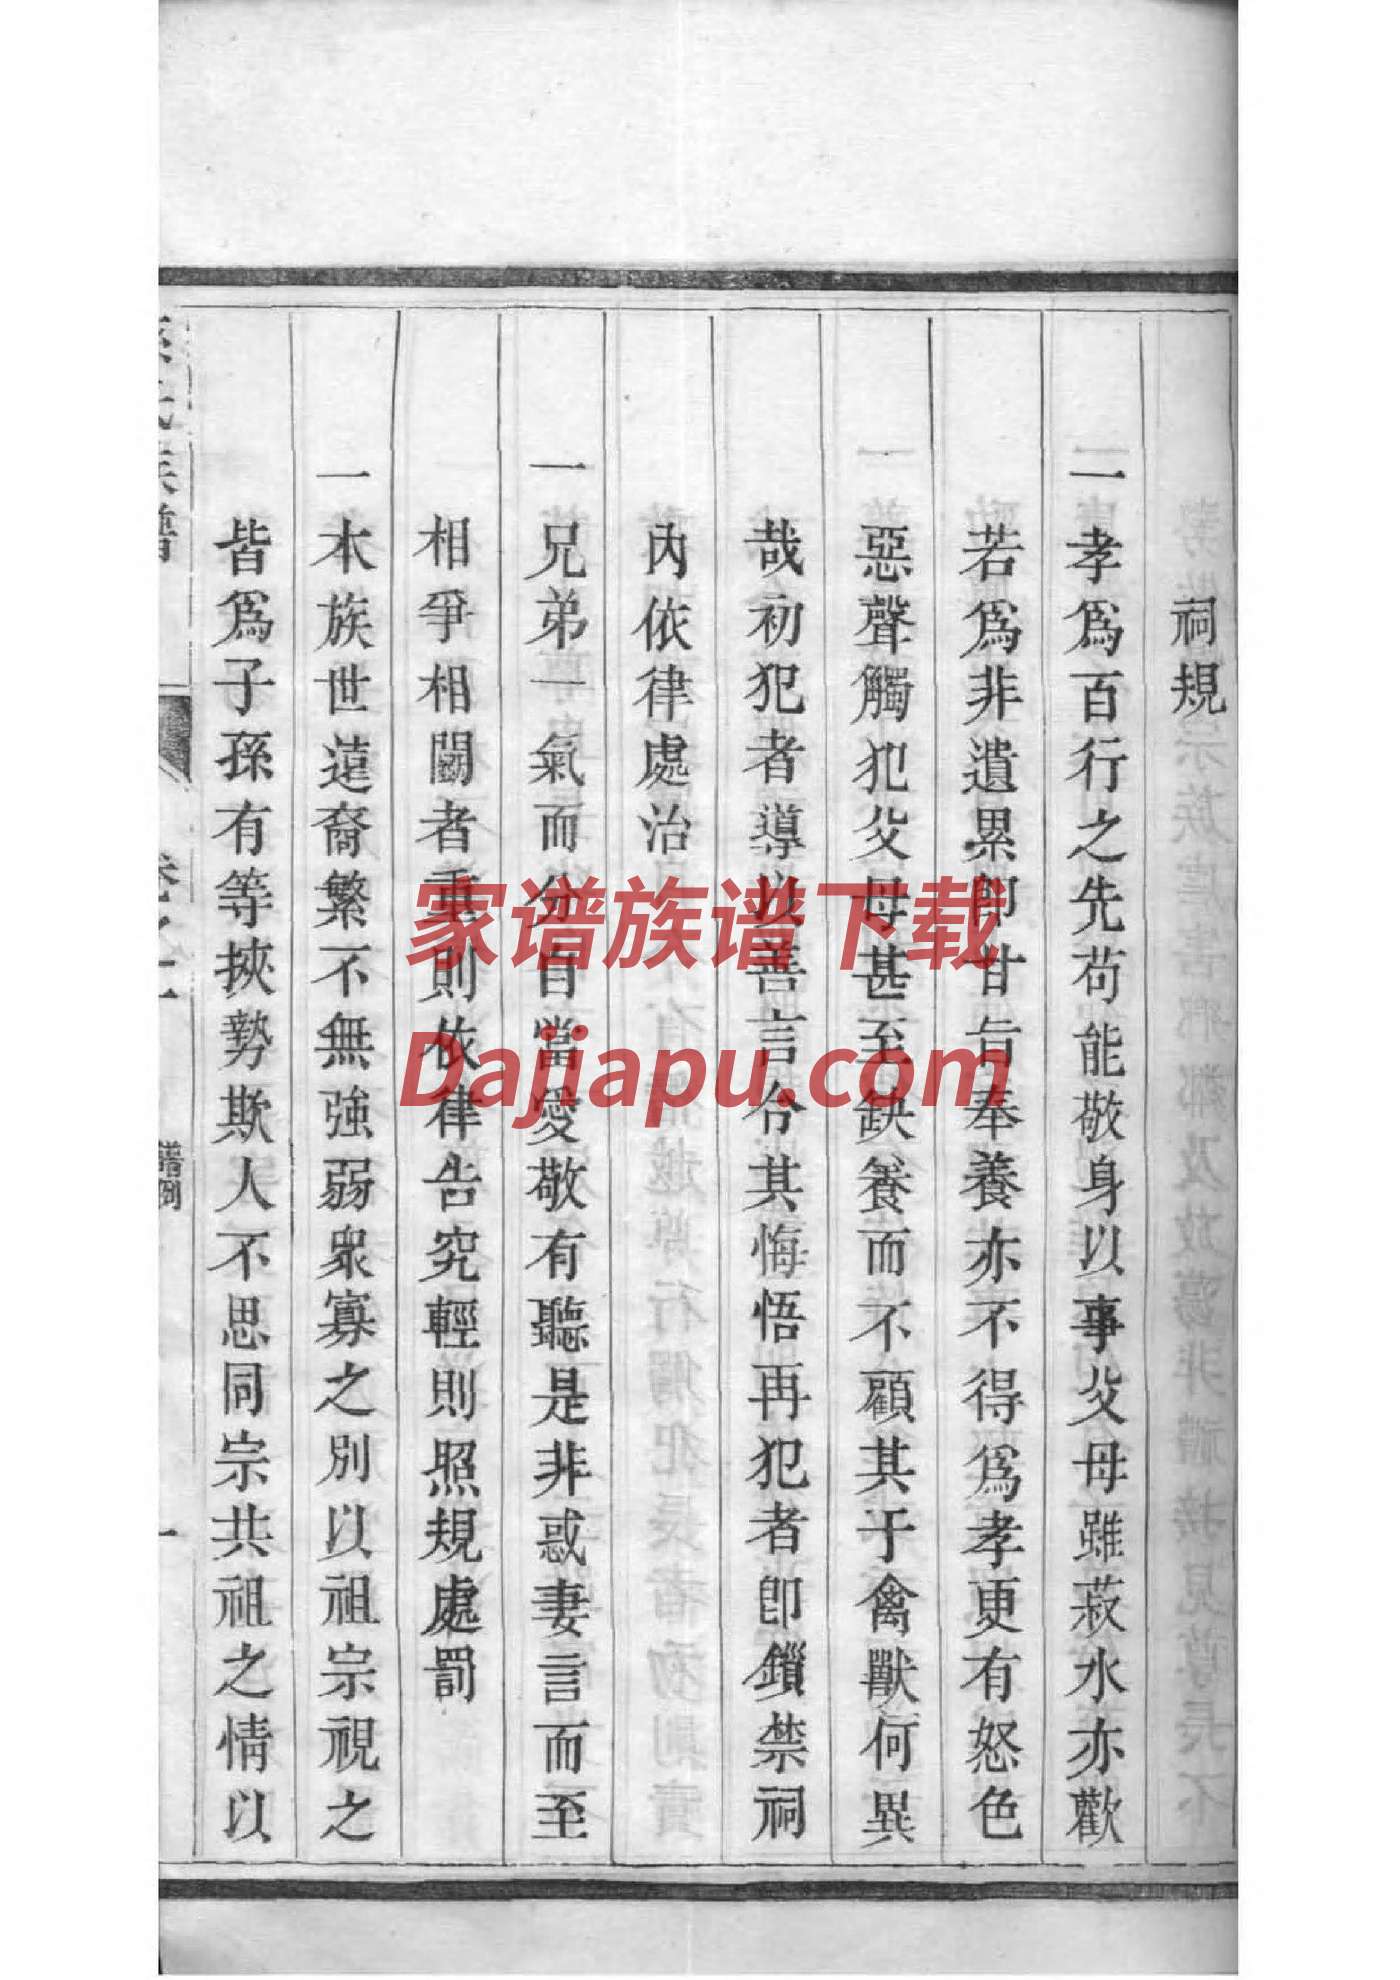 祠規
一孝爲百行之先苟能敬身以事父母雖菽水亦歡
若爲非遺累卽甘旨奉養亦不得爲孝更有怒色
惡聲觸犯父母甚至缺養而不顧其于禽獸何異
哉初犯者導以善言令其悔悟再犯者卽鎖禁祠
內依律處治
一兄弟一氣而分自當愛敬有聽是非惑妻言而至
相爭相鬭者重則依律告究輕則照規處罰
一本族世遠裔繁不無強弱衆寡之別以祖宗視之
皆爲子孫有等挾勢欺人不思同宗共祖之情以
氏族譜
卷之一
譜例
一
家谱族谱下载
Dajiapu.com